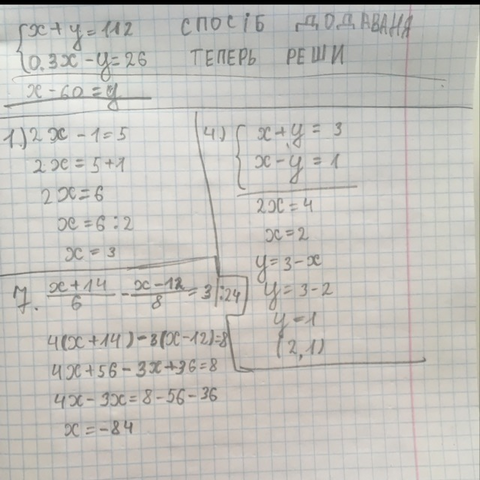 x + y = 112 СПОСІБ ДОДАВАНЯ
0,3x - y = 26 ТЕПЕРЬ РЕШИ
x - 60 = y
1) 2x - 1 = 5
2x = 5 + 1
2x = 6
x = 6 : 2
x = 3
4) x + y = 3
x - y = 1
2x = 4
x = 2
y = 3 - x
y = 3 - 2
y = 1
(2,1)
7. (x + 14)/6 - (x - 12)/8 = 3 | : 24
4(x + 14) - 3(x - 12) = 8
4x + 56 - 3x + 36 = 8
4x - 3x = 8 - 56 - 36
x = -84